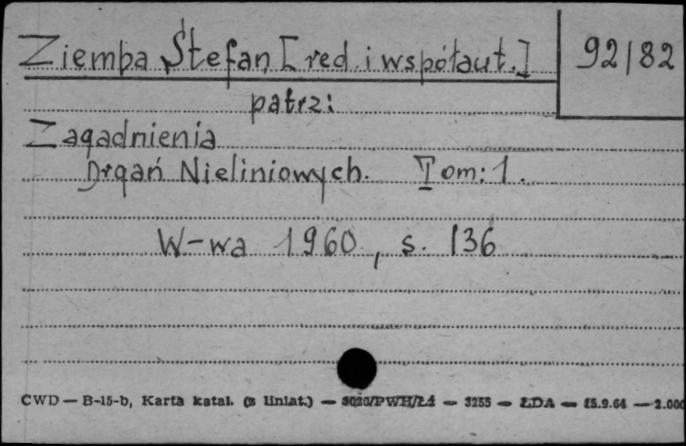 Ziemba Stefan [red. i współaut.] 92/82
patrz:
Zagadnienia
Drgań Nieliniowych. Tom: 1.
W-wa 1960, s. 136
CWD — B-15-b, Karta katal. (z liniat.) — 3020/PWH/Ł4 — 3255 — ŁDA — 15.9.64 — 2.000